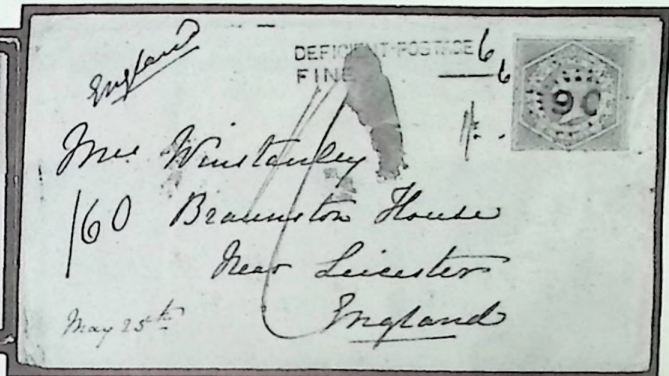 England
DEFICIENT POSTAGE 6
FINE 6
1/-.
90
Mrs Winstanley
160 Braunston House
Near Leicester
England
May 25th